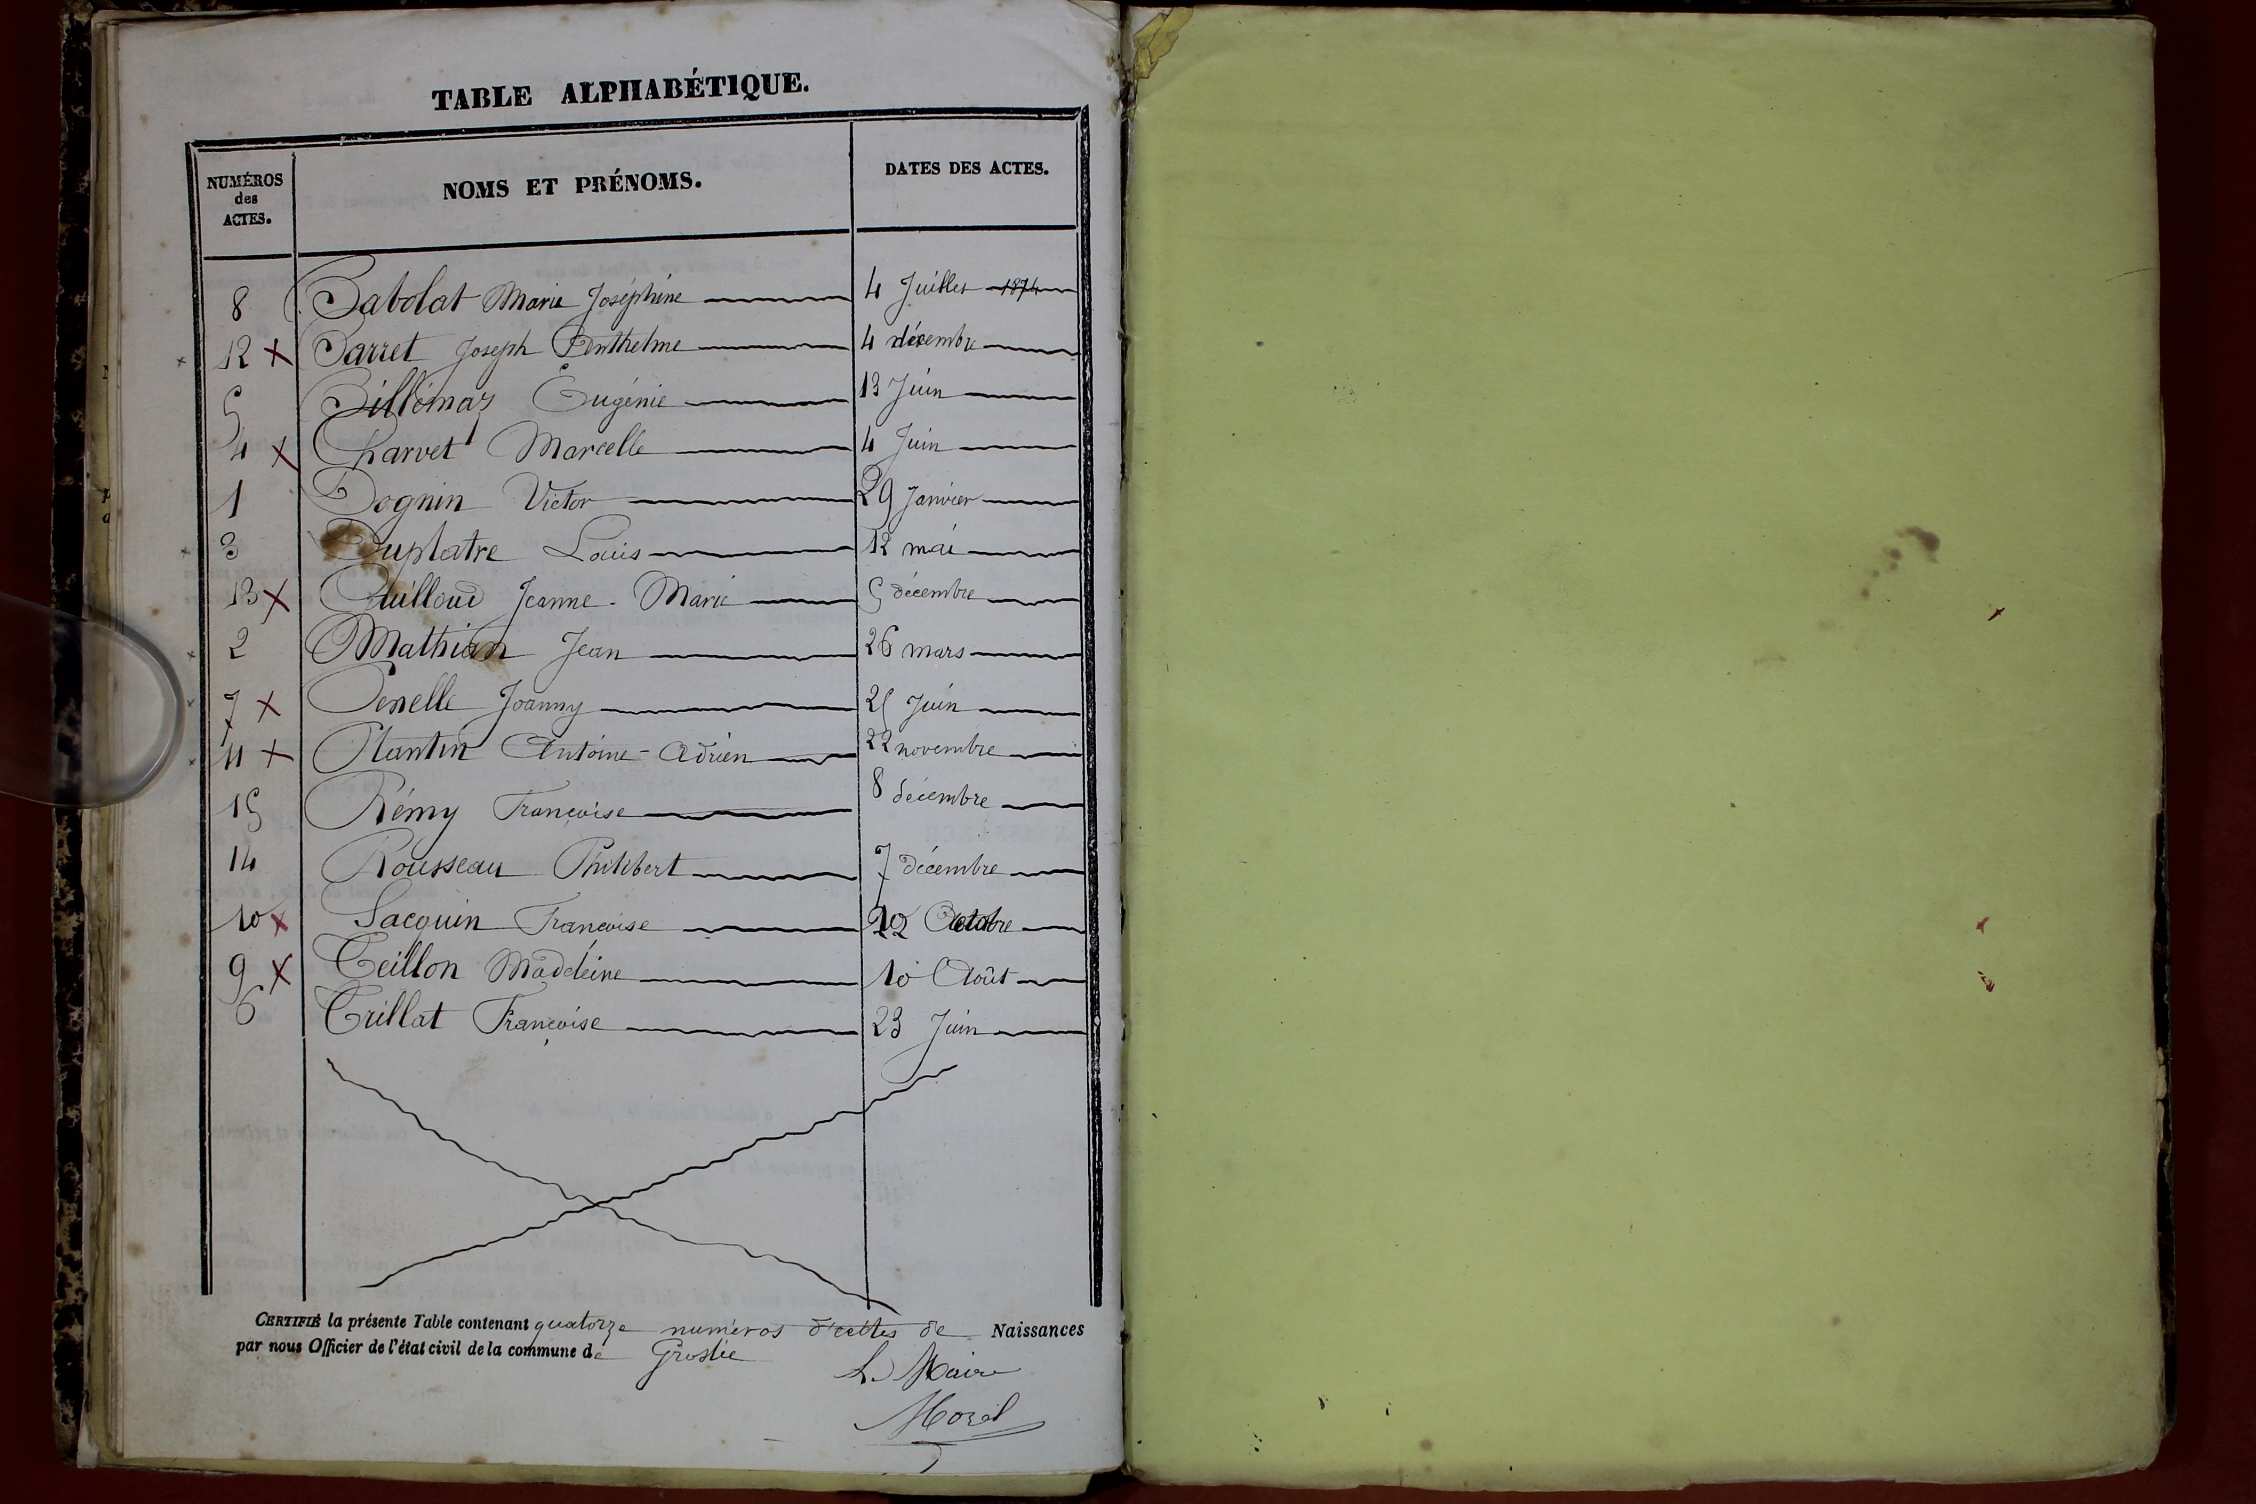 TABLE ALPHABÉTIQUE.
NUMÉROS des ACTES. NOMS ET PRÉNOMS. DATES DES ACTES.
8 Babolat Marie Joséphine 4 Juillet 1874
12 x Barret Joseph Anthelme 4 décembre
5 Billiémaz Eugénie 13 Juin
4 x Charvet Marcelle 4 Juin
1 Dognin Victor 29 Janvier
3 Duplatre Louis 12 mai
13 x Guilloud Jeanne-Marie 5 décembre
2 Mathian Jean 26 mars
7 x Penelle Joanny 25 Juin
11 x Plantin Antoine-Adrien 22 novembre
15 Rémy Françoise 8 décembre
14 Rousseau Philibert 7 décembre
10 x Sacquin Francoise 22 Octobre
9 x Teillon Madeleine 10 Août
6 Trillat Françoise 23 Juin
CERTIFIÉ la présente Table contenant quatorze numéros d'actes de Naissances
par nous Officier de l'état civil de la commune de Groslée
Le Maire
Morel